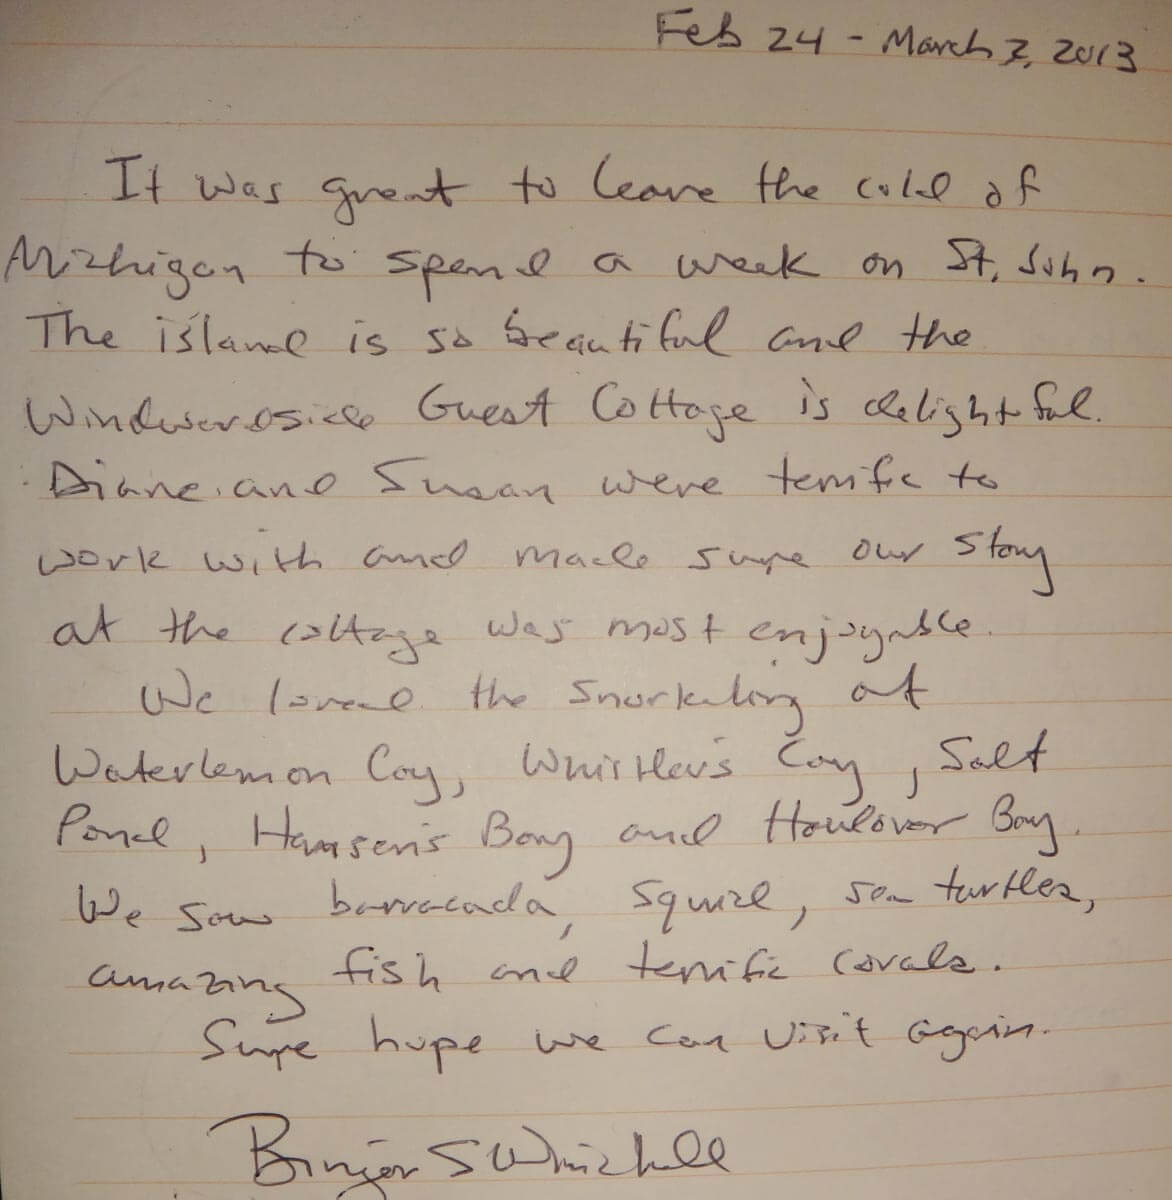 Feb 24 - March 3, 2013
It was great to leave the cold of
Michigan to spend a week on St. John.
The island is so beautiful and the
Windwardside Guest Cottage is delightful.
Diane and Susan were terrific to
work with and made sure our stay
at the cottage was most enjoyable.
We loved the snorkeling at
Waterlemon Cay, Whistler's Cay, Salt
Pond, Hansen's Bay and Haulover Bay.
We saw barracada, squid, sea turtles,
amazing fish and terrific corals.
Sure hope we can visit again.